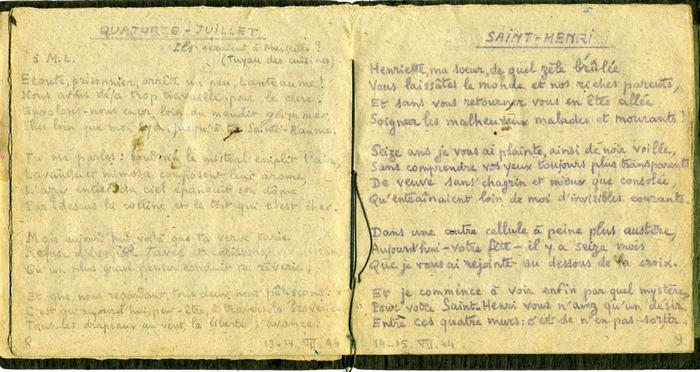 QUATORZE-JUILLET
Ils seraient à Marseille?
(Tuyau des cuisines)
à M.L.
Ecoute, prisonnier, arrête un peu, Lanteaume!
Nous avons déjà trop travaillé pour le clerc.
Envolons-nous encor loin du maudit
Plus loin que mon Lyon, jusqu'à ta Sainte-Baume.
Tu me parles: soudain le mistral emplit l'air,
Lavande et mimosa composent leur arome,
L'azur entier du ciel épanouit son dôme
Par-dessus la colline et le toit qui t'est cher.
Mais aujourd'hui voilà que ta verve varie
Refuse d'évoquer
Qu'un plus grave penser conduit ta rêverie,
Et que, nous regardant tous deux, nous pâlissons:
C'est qu'aujourd'hui, peut-être, à travers la Provence
Tous les drapeaux au vent, la liberté s'avance.
8 13-14. VII. 44
SAINT-HENRI
Henriette, ma sœur, de quel zèle brûlée
Vous laissâtes le monde et nos riches parents,
Et sans vous retourner vous en être allée
Soigner les malheureux malades et mourants!
Seize ans je vous ai plainte, ainsi de noir voilée,
Sans comprendre vos yeux toujours plus transparents
De veuve sans chagrin et mieux que consolée
Qu'entraînaient loin de moi d'invisibles courants.
Dans une autre cellule à peine plus austère,
Aujourd'hui - votre fête - il y a seize mois
Que je vous ai rejointe au dessous de la croix.
Et je commence à voir enfin par quel mystère,
Pour votre Saint-Henri vous n'avez qu'un désir,
Entre ces quatre murs: c'est de n'en pas sortir.
14-15. VII. 44 9